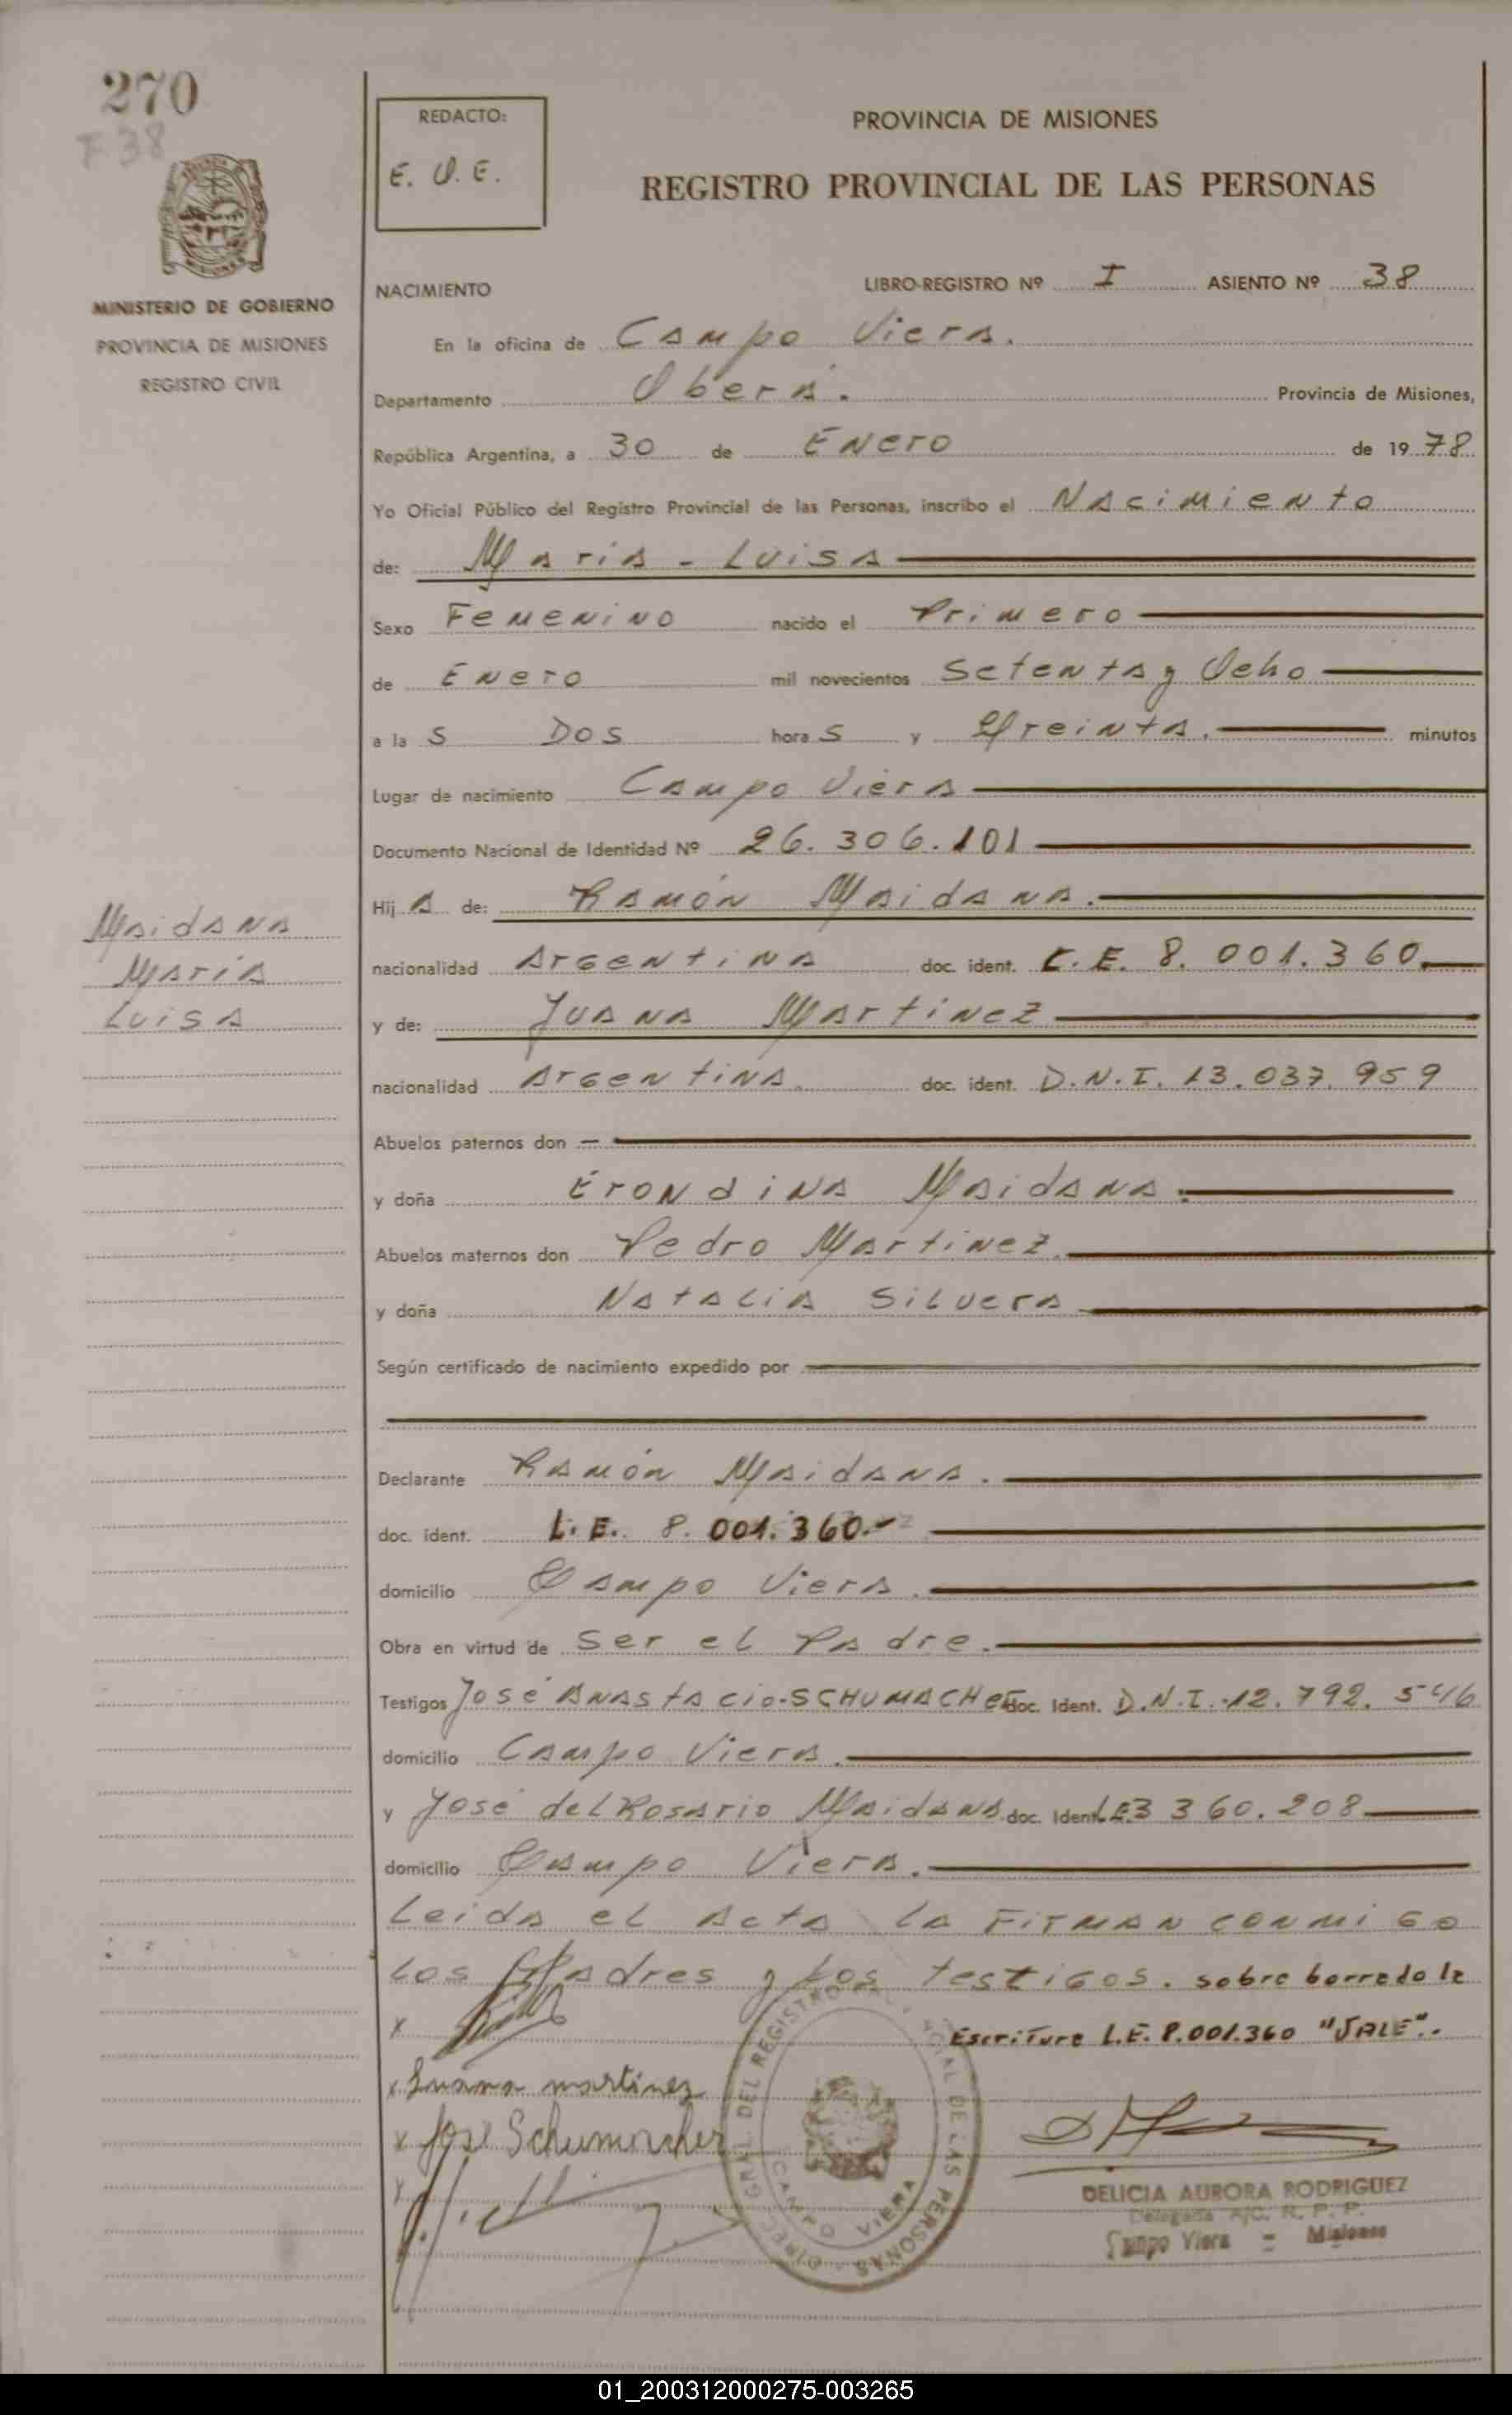 270
F 38
MINISTERIO DE GOBIERNO
PROVINCIA DE MISIONES
REGISTRO CIVIL
Maidana
María
Luisa
REDACTO:
E. O. E.
PROVINCIA DE MISIONES
REGISTRO PROVINCIAL DE LAS PERSONAS
NACIMIENTO LIBRO-REGISTRO Nº I ASIENTO Nº 38
En la oficina de Campo Viera.
Departamento Oberá. Provincia de Misiones,
República Argentina, a 30 de Enero de 1978
Yo Oficial Público del Registro Provincial de las Personas, inscribo el Nacimiento
de: Maria - Luisa
Sexo Femenino nacido el Primero
de Enero mil novecientos Setenta y Ocho
a la s Dos hora s y Treinta. minutos
Lugar de nacimiento Campo Viera
Documento Nacional de Identidad Nº 26.306.101
Hij a de: Ramón Maidana.
nacionalidad Argentina doc. ident. L.E. 8.001.360.
y de: Juana Martinez
nacionalidad Argentina. doc. ident. D.N.I. 13.037.959
Abuelos paternos don —
y doña Erondina Maidana.
Abuelos maternos don Pedro Martinez.
y doña Natalia Silvera
Según certificado de nacimiento expedido por
Declarante Ramón Maidana.
doc. ident. L.E. 8.001.360.-
domicilio Campo Viera.
Obra en virtud de ser el Padre.
Testigos José Anastacio-SCHUMACHer doc. Ident. D.N.I.-12.792.546
domicilio Campo Viera.
y José del Rosario Maidana. doc. Ident. L.E. 3 360.208
domicilio Campo Viera.
Leida el Acta la Firman conmigo
los Padres y los testigos. sobre borrado la
Escritura L.E. 8.001.360 "VALE".
x
x Juana martinez
x José Schumacher
x
DIREC. GRAL. DEL REGISTRO PROVINCIAL DE LAS PERSONAS
CAMPO VIERA
DELICIA AURORA RODRIGUEZ
Delegada A/C. R. P. P.
Campo Viera - Misiones
01_200312000275-003265